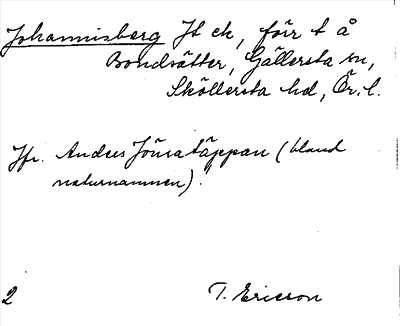 Johannisberg Jt ek, förr t å
Bondsätter, Gällersta sn,
Sköllersta hd, Ör. l.
Jfr. Anders Jönsatäppan (bland
naturnamnen).
2 T. Ericson